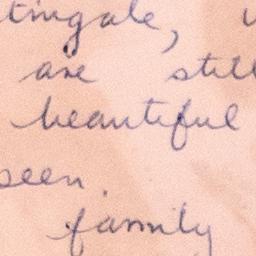 tingale,
are still
beautiful
seen.
family